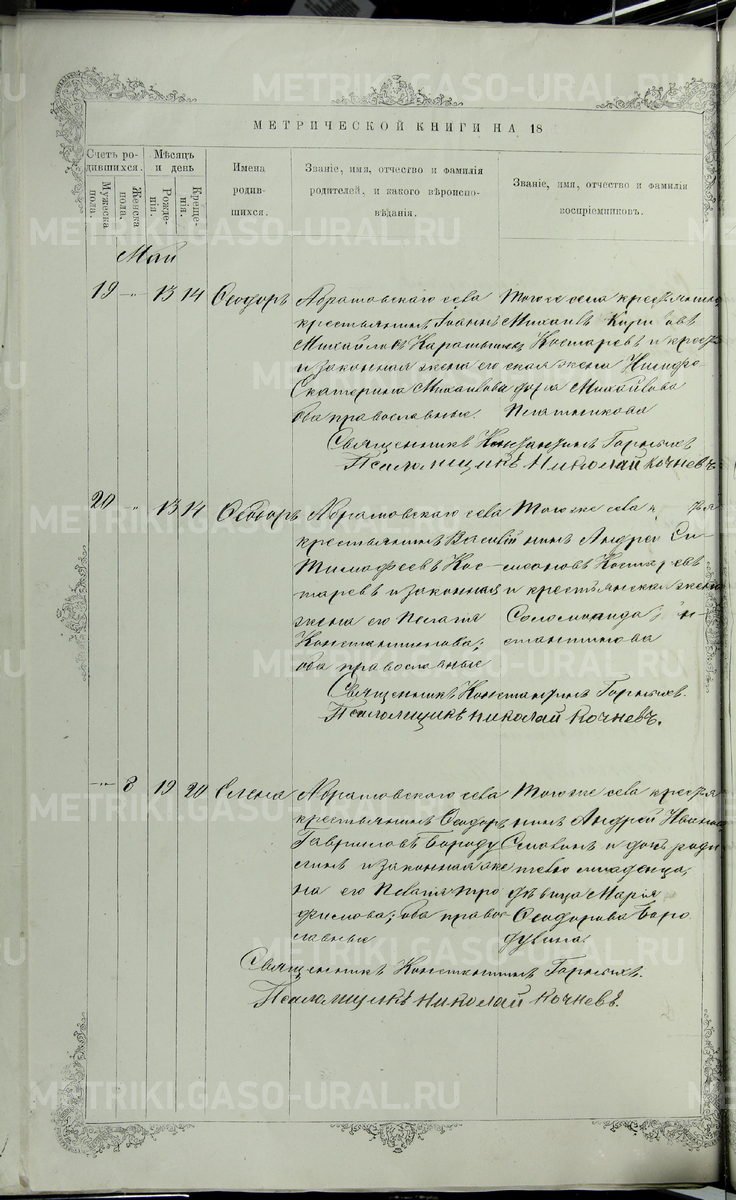 МЕТРИЧЕСКОЙ КНИГИ НА 18
Счетъ ро-
дившихся.
Мужеска
пола.
Женска
пола.
Мѣсяцъ
и день
Рожде-
нія.
Креще-
нія.
Имена
родив-
шихся.
Званіе, имя, отчество и фамилія
родителей, и какого вѣроиспо-
вѣданія.
Званіе, имя, отчество и фамилія
воспріемниковъ.
Май
19 -"- 13 14 Ѳеодоръ
Абрамовскаго села
крестьянинъ Іоаннъ
Михайловъ
и законная жена его
Екатерина Михайлова
оба православные.
Тогоже села крестьянинъ
Михаилъ
Костаревъ и крестья
ская жена
Михайлова
Пятникова
Священникъ Константинъ Горныхъ
Псаломщикъ Николай Кочневъ
20 " 13 14 Ѳеодоръ
Абрамовскаго села
крестьянинъ Василій
Тимофеевъ Кос-
таревъ и законная
жена его Пелагія
Константинова;
оба православные
Тогоже села
нинъ Андрей Си-
Костаревъ
и крестьянская жена
Соломонида
стантинова
Священникъ Константинъ Горныхъ.
Псаломщикъ Николай Кочневъ.
-"- 8 19 20 Елена
Абрамовскаго села
крестьянинъ Ѳеодоръ
Гавриловъ Бороду
линъ и законная же
на его Пелагія Тро
фимова; оба право
славные
Тогоже села крестья
нинъ Андрей Ивановъ
и дочь роди
телей младенца,
дѣвица Марія
Ѳеодорова Боро
дулина.
Священникъ Константинъ Горныхъ.
Псаломщикъ Николай Кочневъ.
METRIKI.GASO-URAL.RU